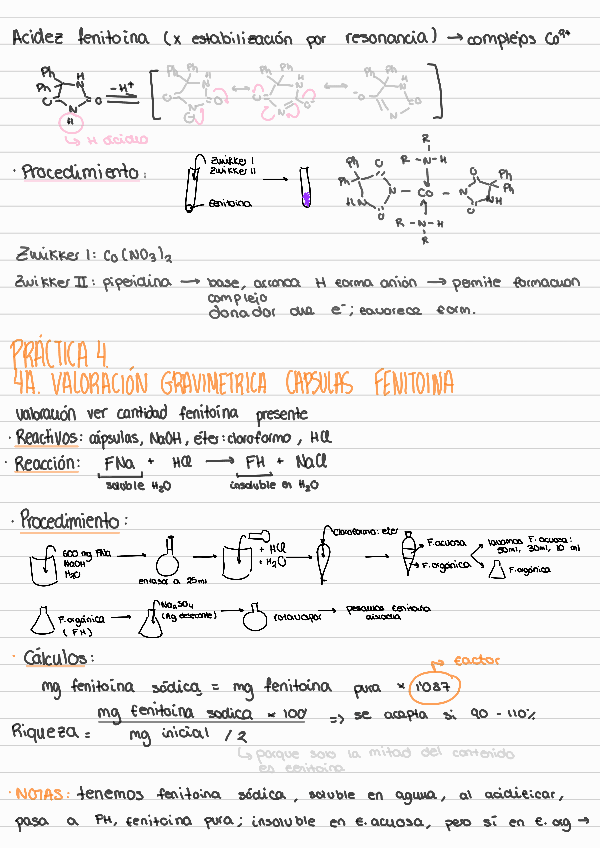 Acidez fenitoína (x estabilización por resonancia) → complejos Co²⁺
Ph Ph H N O N H O −H⁺ Ph Ph H N O N O Ph Ph H N O N O Ph Ph H N O N O
↳ H ácido
· Procedimiento: Zwikker I
Zwikker II
fenitoína
Ph Ph O N HN O R R-N-H Co R-N-H R O N Ph Ph NH O
Zwikker I: Co(NO₃)₂
Zwikker II: piperidina → base, arranca H forma anión → permite formacion
complejo
donador de e⁻; favorece form.
PRÁCTICA 4.
4A. VALORACIÓN GRAVIMETRICA CAPSULAS FENITOINA
valoración ver cantidad fenitoína presente
· Reactivos: cápsulas, NaOH, éter:cloroformo, HCl
· Reacción: FNa + HCl → FH + NaCl
soluble H₂O insoluble en H₂O
· Procedimiento:
600 mg FNa
NaOH
H₂O
enrasar a 25ml
+ HCl
+ H₂O
cloroformo:eter
F.acuosa → lavamos F. acuosa:
50ml, 30ml, 10 ml
F.orgánica → F. orgánica
F.orgánica
(FH)
Na₂SO₄
(Ag desecante)
rotavapor
pesamos fenitoína
aislada
· Cálculos:
factor
mg fenitoína sódica = mg fenitoína pura × 1'087
Riqueza = mg fenitoína sodica × 100 / mg inicial / 2 => se acepta si 90 - 110%
↳ porque solo la mitad del contenido
es fenitoína
· NOTAS: tenemos fenitoína sódica, soluble en agua, al acidificar,
pasa a FH, fenitoína pura; insoluble en f.acuosa, pero sí en f. org →